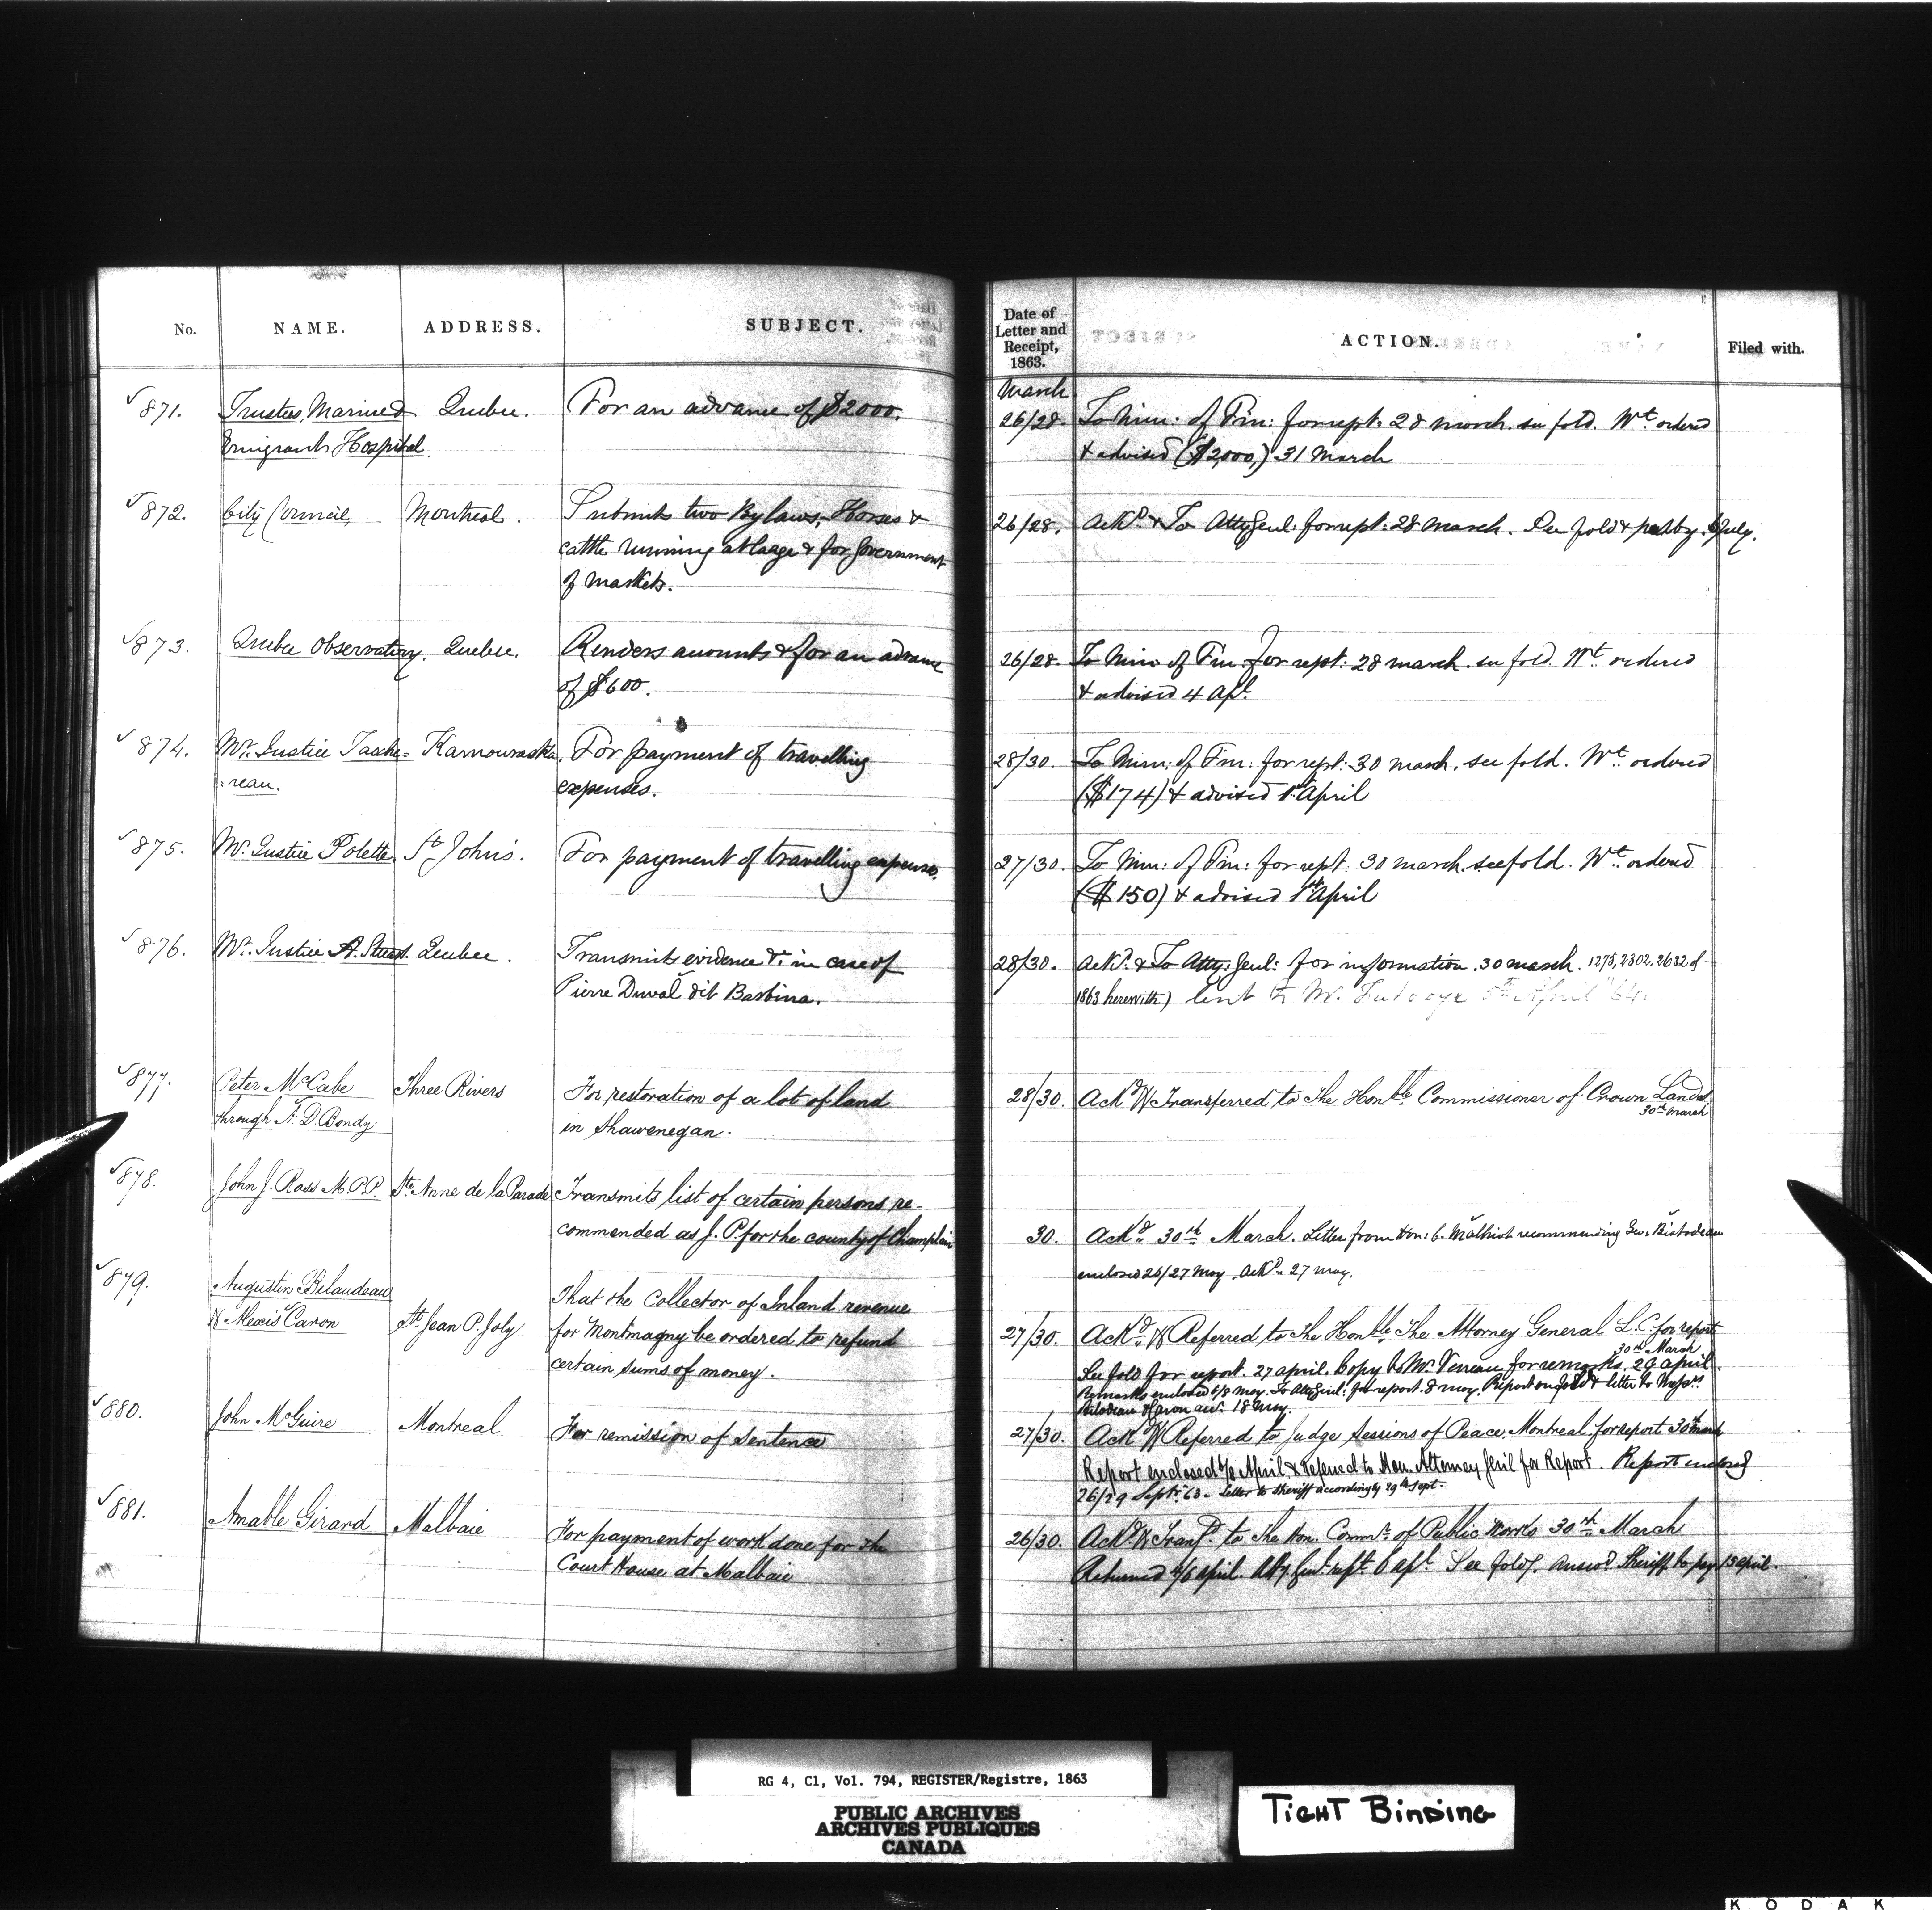 No. NAME. ADDRESS. SUBJECT.
Date of Letter and Receipt, 1863. ACTION. Filed with.
March
871. Trustees, Marine & Quebec. For an advance of $2000. 26/28. To Min: of Fin: for rept: 28 March. see fold. Wt. ordered
Emigrants Hospital. & advised ($2,000,) 31 March
872. City Council, Montreal. Submits two By laws, Horses & 26/28. Ackd. & To Atty Genl: for rept: 28 March. See fold & July.
cattle running at large & for government
of Markets.
873. Quebec Observatory. Quebec. Renders accounts & for an advance 26/28. To Min of Fin for rept: 28 March. see fold. Wt. ordered
of $600. & advised 4 Apl.
874. Mr. Justice Tasche= Kamouraska. For payment of travelling 28/30. To Min: of Fin: for rept: 30 March. see fold. Wt. ordered
=reau. expenses. ($174) & advised 1st April
875. Mr. Justice Polette St Johns. For payment of travelling expenses. 27/30. To Min: of Fin: for rept: 30 March. see fold. Wt. ordered
($150) & advised 1st April
876. Mr. Justice A. Stuart. Quebec. Transmits evidence &c. in case of 28/30. Ackd. & To Atty: Genl: for information. 30 March. 1275, 2302, 2632 of
Pierre Duval dit Barbina. 1863 herewith) lent to Mr. 5th April 64.
877. Peter McCabe Three Rivers For restoration of a lot of land 28/30. Ackd & Transferred to The Honble. Commissioner of Crown Lands
30th March
through A. D. Bondy in Shawenegan.
878. John J. Ross M.P.P. Ste Anne de la Parade Transmits list of certain persons re-
commended as J. P. for the county of Champlain 30. Ackd 30th March. Letter from Hon: C. Malhiot recommending Geo:
enclosed 26/27 May. Ackd. 27 May.
879. Augustin Bilaudeau That the Collector of Inland revenue
& Alexis Caron St. Jean P. Joly for Montmagny be ordered to refund 27/30. Ackd & Referred to The Honble The Attorney General L.C. for report
30th March
certain sums of money. See fold for report. 27 April. Copy to Mr. for remarks. 29 April
Remarks enclosed 6/8 May. To Atty Genl: for report. 8 May. Report on fold & letter to Messrs.
Bilodeau & Caron 18 May.
880. John McGuire Montreal For remission of sentence 27/30. Ackd & Referred to Judge Sessions of Peace, Montreal. for report 30th March
Report enclosed April & Referred to Hon. Attorney Genl for Report. Report enclosed
26/29 Septr. 63. Letter to Sheriff accordingly 29th Sept.
881. Amable Girard Malbaie For payment of work done for the 26/30. Ackd. & Transfd. to The Hon. Commr. of Public Works 30th March
Court House at Malbaie Returned 4/6 April. Atty Genl. rept. 6 Apl. See fold. Sheriff to pay 15 April.
RG 4, C1, Vol. 794, REGISTER/Registre, 1863
PUBLIC ARCHIVES
ARCHIVES PUBLIQUES
CANADA
TIGHT BINDING
KODAK